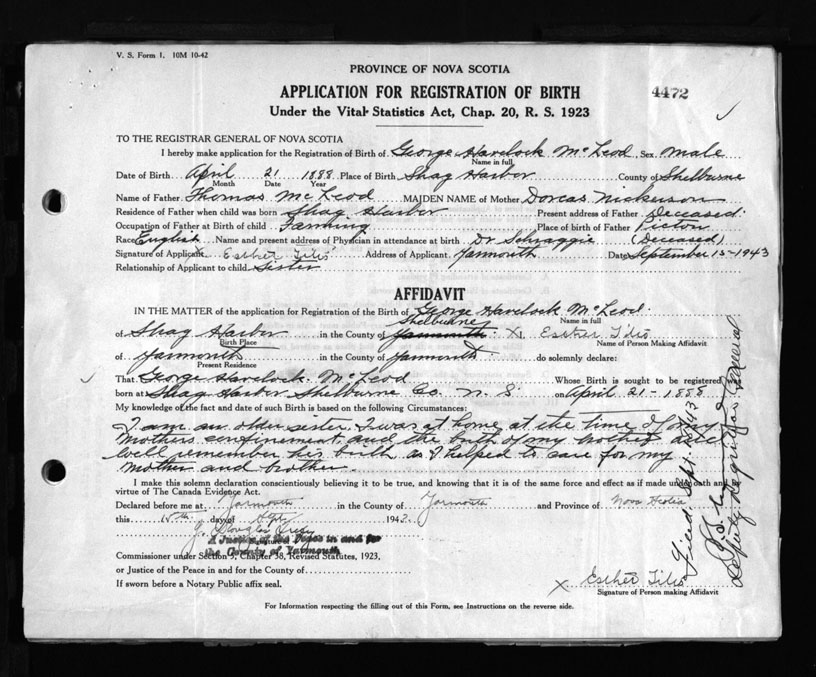 V. S. Form 1. 10M 10-42
PROVINCE OF NOVA SCOTIA
APPLICATION FOR REGISTRATION OF BIRTH
4472
Under the Vital Statistics Act, Chap. 20, R. S. 1923
TO THE REGISTRAR GENERAL OF NOVA SCOTIA
I hereby make application for the Registration of Birth of George Havelock McLeod Sex male
Name in full
Date of Birth April 21 1888 Place of Birth Shag Harbor County of Shelburne
Month Date Year
Name of Father Thomas McLeod MAIDEN NAME of Mother Dorcas Nickerson
Residence of Father when child was born Shag Harbor Present address of Father Deceased
Occupation of Father at Birth of child Farming Place of birth of Father Pictou
Race English Name and present address of Physician in attendance at birth Dr (Deceased)
Signature of Applicant x Esther Address of Applicant Yarmouth Date September 15-1943
Relationship of Applicant to child Sister
AFFIDAVIT
IN THE MATTER of the application for Registration of the Birth of George Havelock McLeod
Name in full
Shelburne
of Shag Harbor in the County of Yarmouth X I, Esther
Birth Place Name of Person Making Affidavit
of Yarmouth in the County of Yarmouth do solemnly declare:
Present Residence
That George Havelock McLeod Whose Birth is sought to be registered
born at Shag Harbor Shelburne Co. N. S on April 21-1888
My knowledge of the fact and date of such Birth is based on the following Circumstances:
I am an older sister. I was at home at the time of my
mothers confinement, and the birth of my brother and
well remember his birth as I helped to care for my
mother and brother.
I make this solemn declaration conscientiously believing it to be true, and knowing that it is of the same force and effect as if made under oath and
virtue of The Canada Evidence Act.
Declared before me at Yarmouth in the County of Yarmouth and Province of Nova Scotia
this 15th day of Sept 1943
J. Douglas
A Justice of the Peace in and for
Signature of
the County of Yarmouth
Commissioner under Section 3, Chapter 38, Revised Statutes, 1923,
or Justice of the Peace in and for the County of
If sworn before a Notary Public affix seal.
x Esther
Signature of Person making Affidavit
For Information respecting the filling out of this Form, see Instructions on the reverse side.
Filed. Sept.
Deputy Registrar General